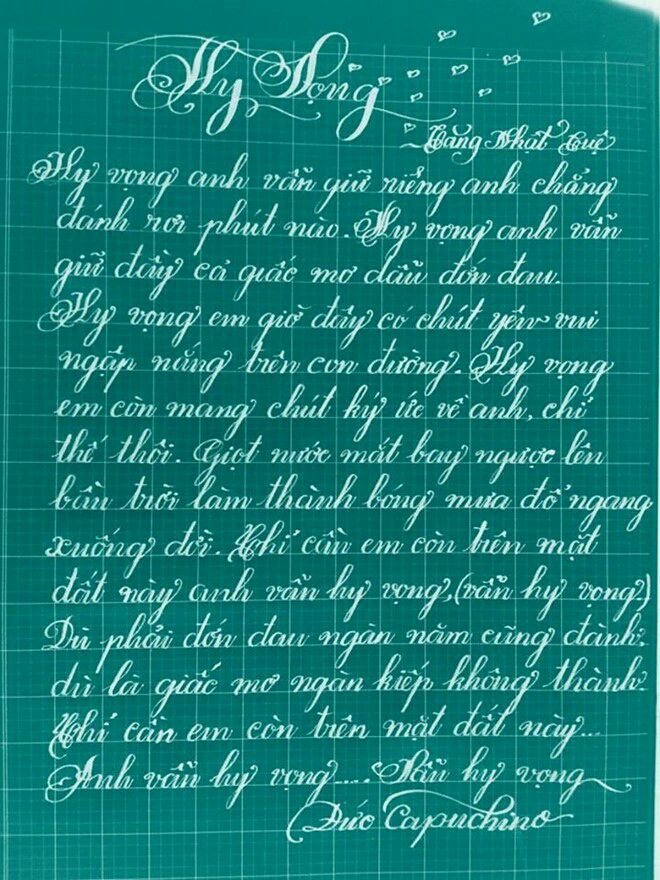 Hy Vọng
Tăng Nhật Tuệ
Hy vọng anh vẫn giữ riêng anh chẳng
đánh rơi phút nào. Hy vọng anh vẫn
giữ đầy cả giấc mơ dẫu đớn đau.
Hy vọng em giờ đây có chút yên vui
ngập nắng trên con đường. Hy vọng
em còn mang chút ký ức về anh, chỉ
thế thôi. Giọt nước mắt bay ngược lên
bầu trời làm thành bóng mưa đổ ngang
xuống đời. Chỉ cần em còn trên mặt
đất này anh vẫn hy vọng, (vẫn hy vọng)
Dù phải đớn đau ngàn năm cũng đành,
dù là giấc mơ ngàn kiếp không thành.
Chỉ cần em còn trên mặt đất này...
Anh vẫn hy vọng.... Vẫn hy vọng
Đức Capuchino